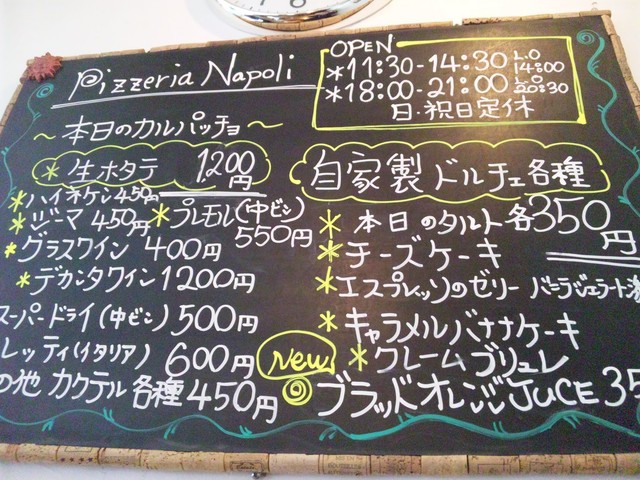 Pizzeria Napoli
OPEN
*11:30-14:30 L.O 14:00
*18:00-21:00 L.O 20:30
日・祝日定休
～本日のカルパッチョ～
*生ホタテ 1200円
*ハイネケン450円
*ジーマ 450円 *プレモル(中ビン) 550円
*グラスワイン 400円
*デカンタワイン1200円
スーパードライ(中ビン)500円
レッティ(イタリア) 600円
の他 カクテル 各種 450円
自家製 ドルチェ各種
* 本日のタルト各350円
*チーズケーキ
*エスプレッソのゼリー バニラジェラート
*キャラメルバナナケーキ
*クレームブリュレ
New
ブラッドオレンジJUCE 35